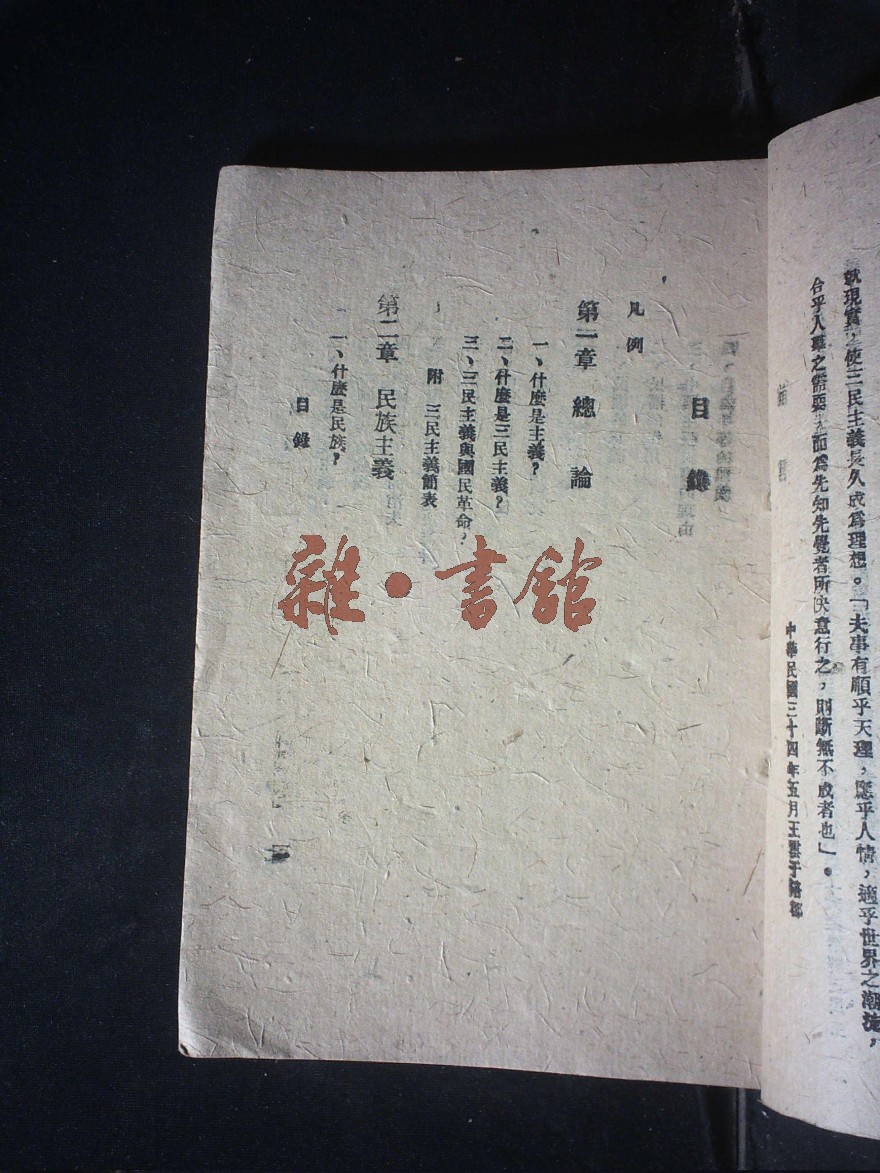 就現實，使三民主義長久成爲理想。「夫事有順乎天理，應乎人情，適乎世界之潮流，
合乎人羣之需要，而爲先知先覺者所決意行之，則斷無不成者也」。
中華民國三十四年五月王雲于
目錄
凡例
第一章 總論
一、什麼是主義？
二、什麼是三民主義？
三、三民主義與國民革命？
附 三民主義簡表
第二章 民族主義
一、什麼是民族？
目錄
一
雜·書館